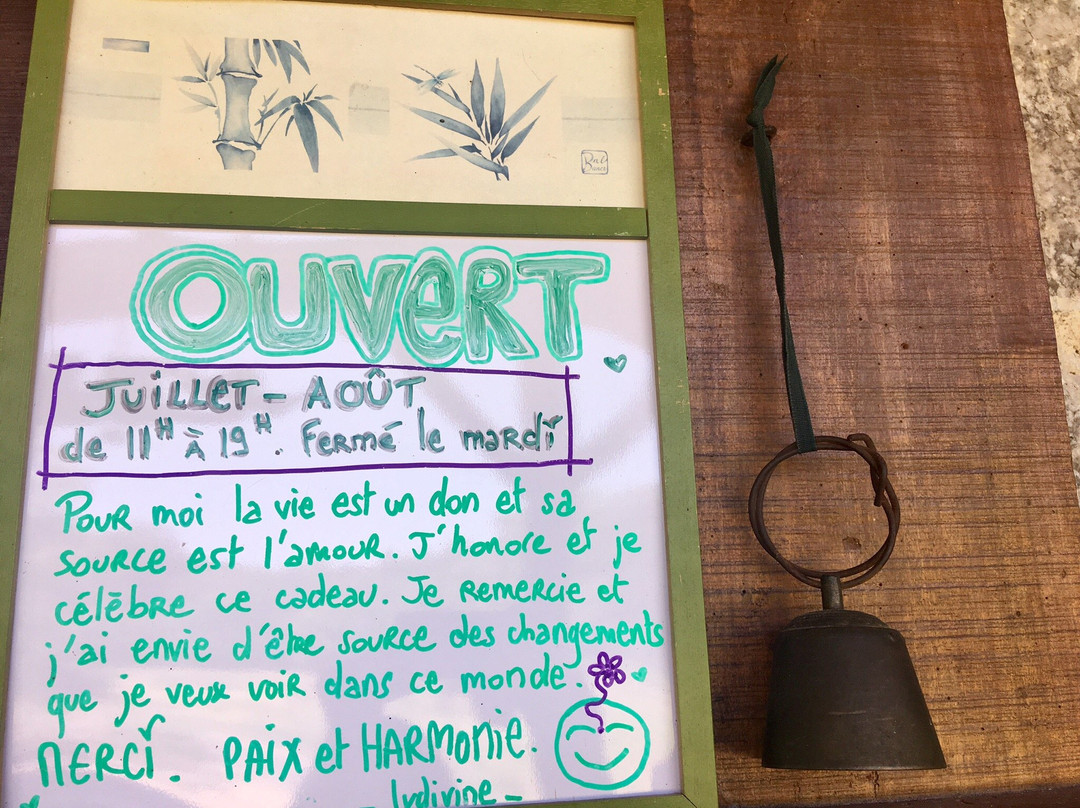 OUVERT
JUILLET - AOÛT
de 11H à 19H. Fermé le mardi
Pour moi la vie est un don et sa
source est l'amour. J'honore et je
célèbre ce cadeau. Je remercie et
j'ai envie d'être source des changements
que je veux voir dans ce monde.
MERCI. PAIX et HARMONIE.
- Lydivine -